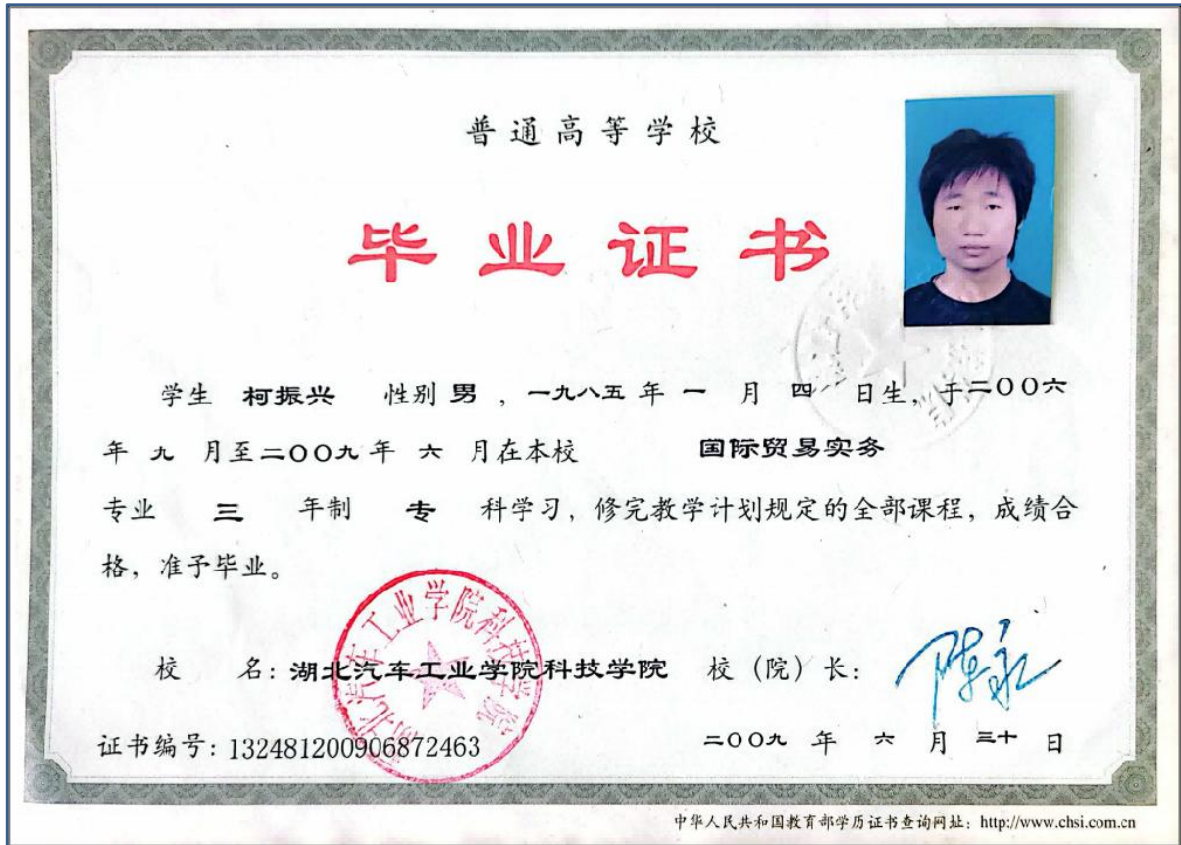 普通高等学校
毕业证书
学生 柯振兴 性别 男 ，一九八五 年 一 月 四 日生，于二〇〇六
年 九 月至二〇〇九 年 六 月在本校 国际贸易实务
专业 三 年制 专 科学习，修完教学计划规定的全部课程，成绩合
格，准予毕业。
校 名：湖北汽车工业学院科技学院 校（院）长：
湖北汽车工业学院科技学院
证书编号：132481200906872463 二〇〇九 年 六 月 三十 日
中华人民共和国教育部学历证书查询网址：http://www.chsi.com.cn